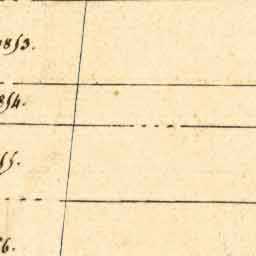 1853.
1854.
55.
6.